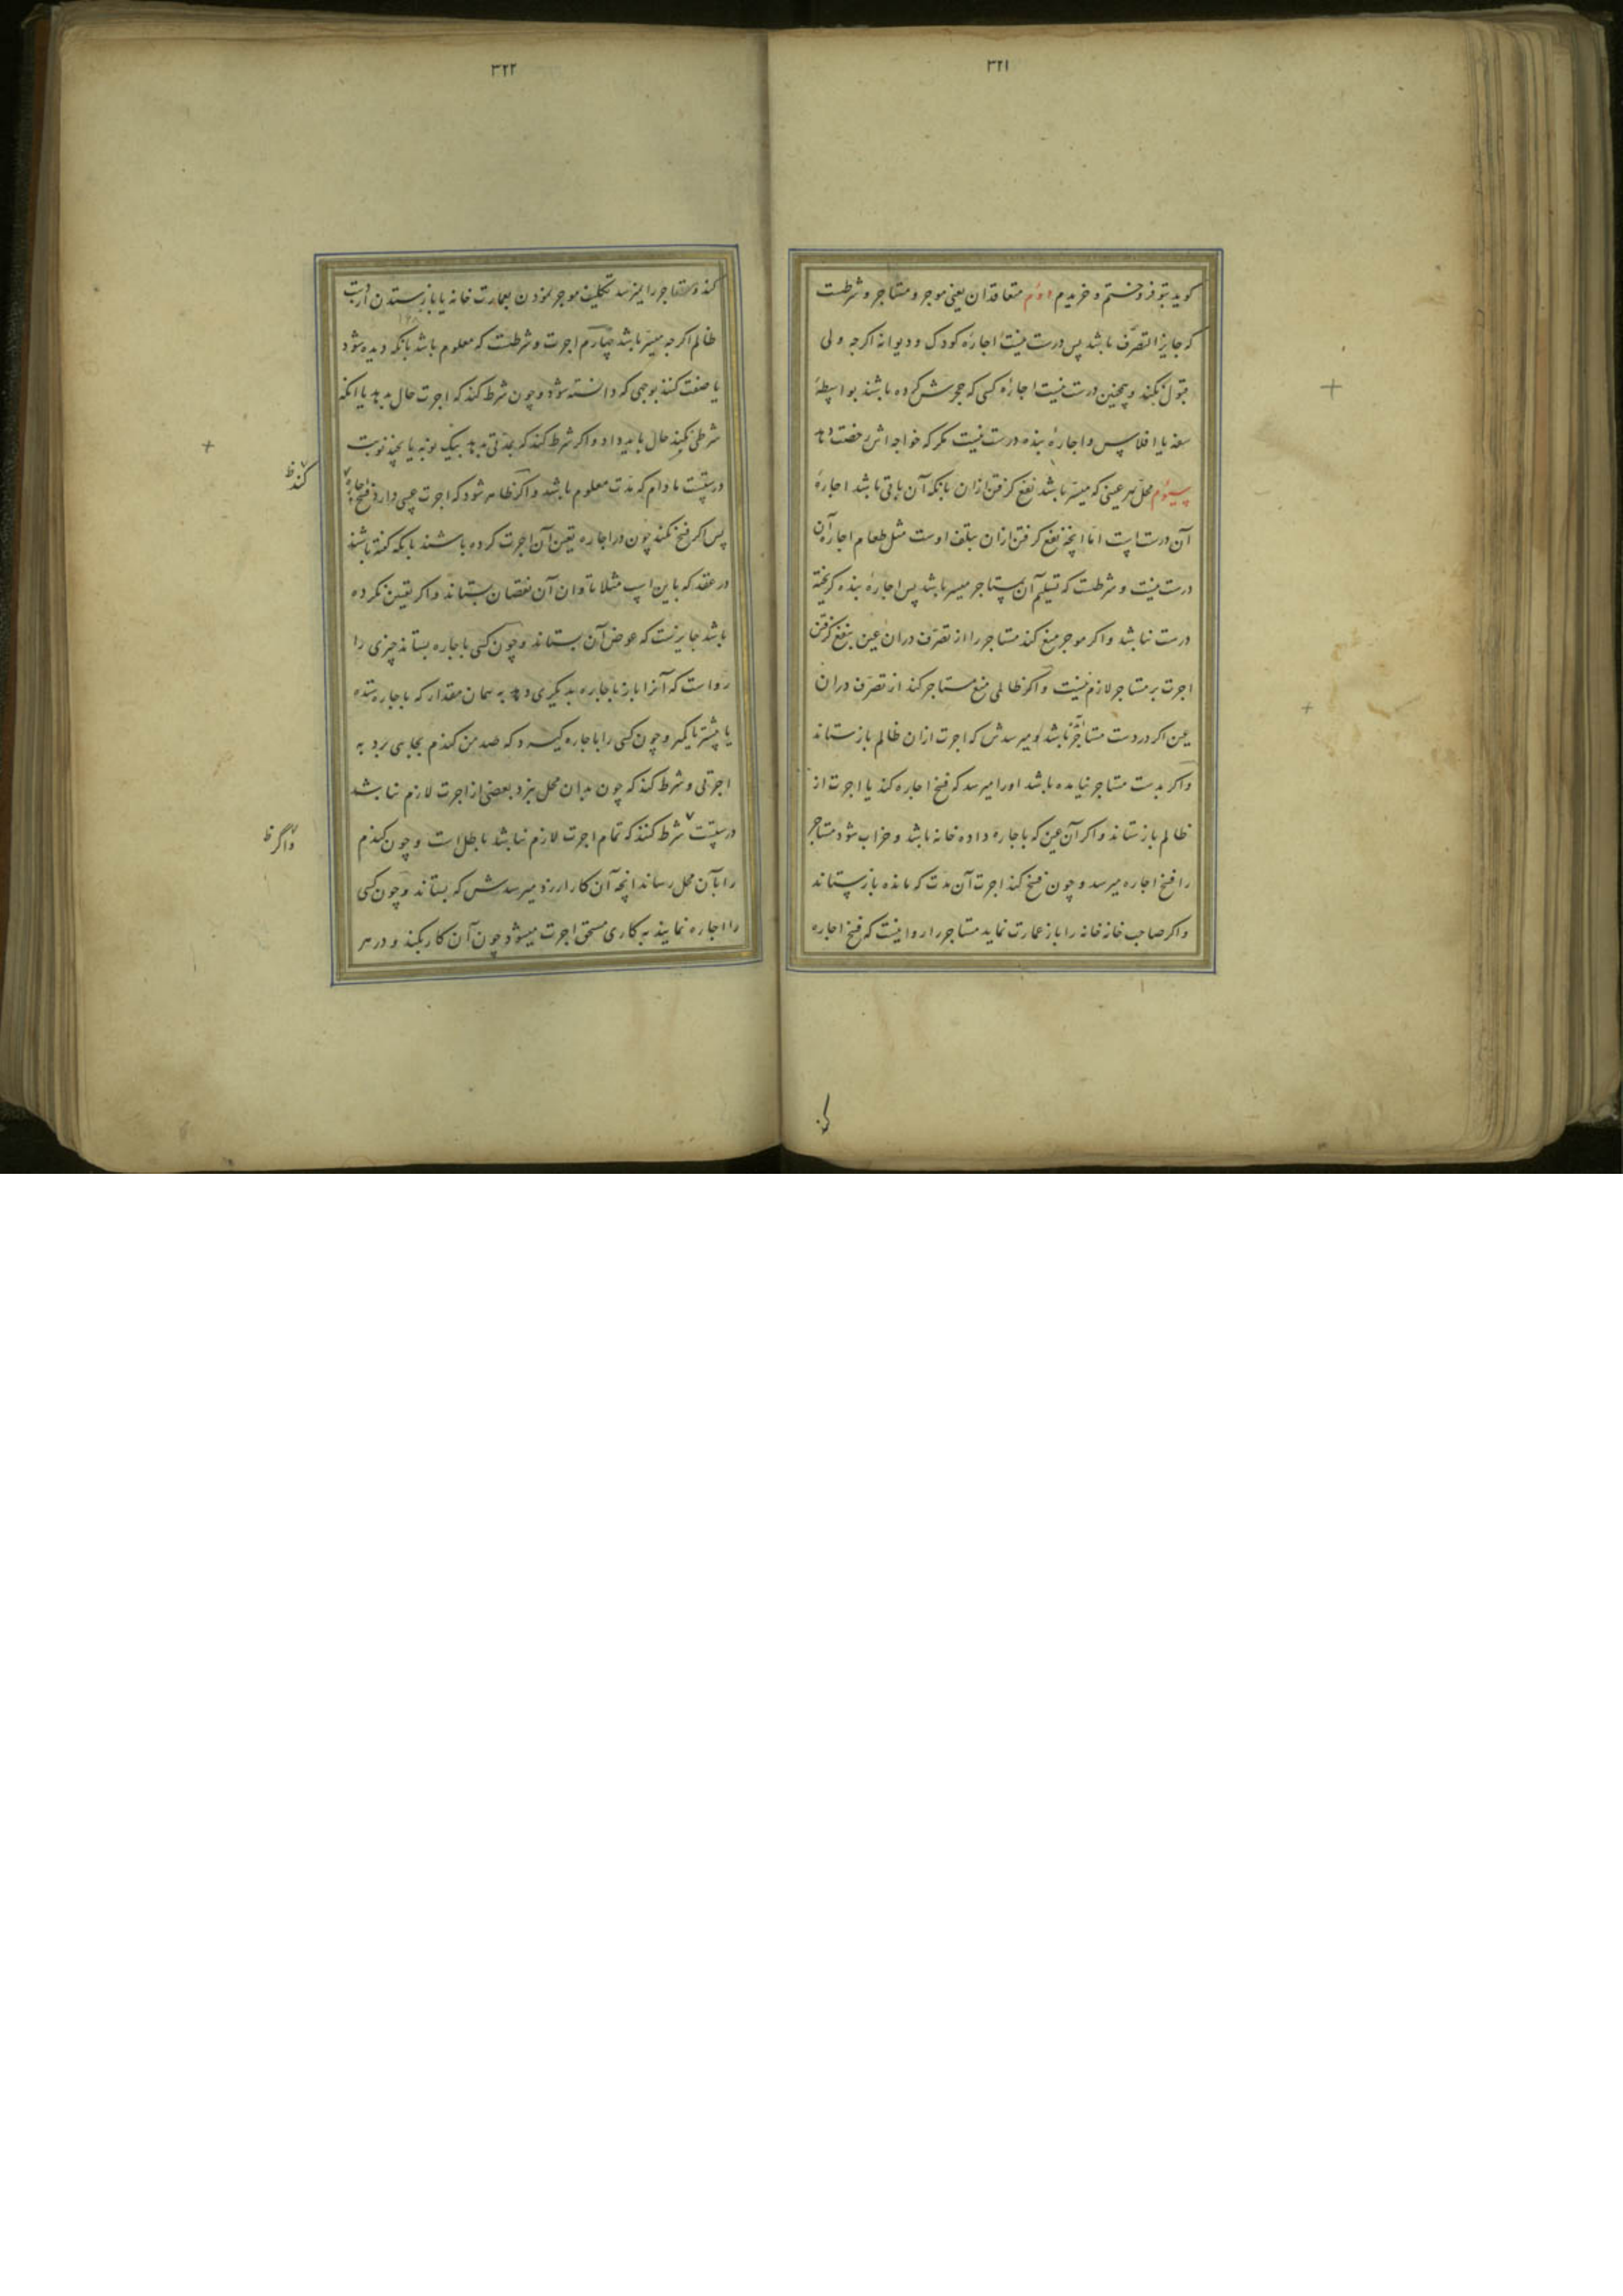 ۳۲۱
کوید بتو فروختم و خریدم دوم متعاقدان یعنی موجر و مستاجر و شرطست
که جایز التصرف باشد پس درست نیست اجارهٔ کودک و دیوانه اکرچه ولی
قبول بکند و همچنین درست نیست اجارهٔ کسی که حجرش کرده باشند بواسطهٔ
سفه یا افلاس و اجارهٔ بنده درست نیست مکر که خواجه اش رخصت دهد
سیوم محل هر عینی که میسر باشد نفع کرفتن ازان بانکه آن باقی باشد اجارهٔ
آن درست است اما انچه نفع کرفتن ازان بتلف اوست مثل طعام اجارهٔ آن
درست نیست و شرطست که تسلیم آن بمستاجر میسر باشد پس اجارهٔ بنده کریخته
درست نباشد و اکر موجر منع کند مستاجر را از تصرف دران عین بنفع کرفتن
اجرت بر مستاجر لازم نیست و اکر ظالمی منع مستاجر کند از تصرف دران
عین اکر در دست مستاجر باشد او میرسدش که اجرت ازان ظالم باز ستاند
و اکر بدست مستاجر نیامده باشد اورا میرسد که فسخ اجاره کند یا اجرت از
ظالم باز ستاند و اکر آن عین که باجاره داده خانه باشد و خراب شود مستاجر
را فسخ اجاره میرسد و چون فسخ کند اجرت آن مدت که مانده باز ستاند
و اکر صاحب خانه خانه را باز عمارت نماید مستاجر را روا نیست که فسخ اجاره
۳۲۲
کند و مستاجر را نیرسد تکلیف موجر نمودن بعمارت خانه یا باز ستدن از دست
ظالم اکرچه میسر باشد چهارم اجرت و شرطست که معلوم باشد بانکه دیده شود
یا صفت کنند بوجهی که دانسته شود و چون شرط کند که اجرت حال بدهد یا انکه
شرطی نکند حال باید داد و اکر شرط کند که بمدتی بدهد بیک نوبه یا بچند نوبت
درستست مادام که مدت معلوم باشد و اکر ظاهر شود که اجرت عیبی دارد فسخ اجاره
کند ظ
پس اکر فسخ نکند چون در اجاره تعین آن اجرت کرده باشند بانکه کفته باشند
در عقد که باین اسب مثلا تاوان آن نقصان بستاند و اکر تعین نکرده
باشد جایزست که عوض آن بستاند و چون کسی باجاره بستاند چیزی را
رواست که آنرا باز باجاره بدیکری دهد به همان مقدار که باجاره ستده
یا بیشتر یا کمتر و چون کسی را باجاره کیرد که صد من کندم بجایی برد به
اجرتی و شرط کند که چون بدان محل نبرد بعضی از اجرت لازم نباشد
درستست شرط کنند که تمام اجرت لازم نباشد باطل است و چون کندم
و اگر ظ
را بآن محل رساند انچه آن کار ارزد میرسدش که بستاند و چون کسی
را اجاره نمایند به کاری مستحق اجرت میشود چون آن کار بکند و در هر